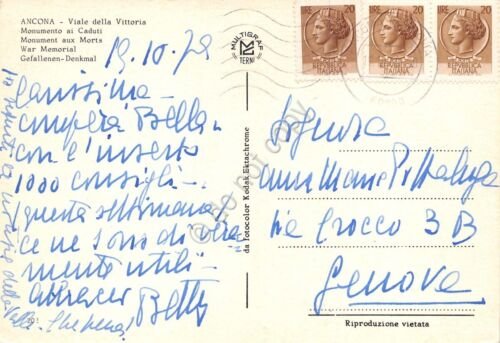 ANCONA - Viale della Vittoria
Monumento ai Caduti
Monument aux Morts
War Memorial
Gefallenen-Denkmal
19.10.72
Carissima -
compera Bella -
con l'inserto
1000 consigli -
(questa settimana)
ce ne sono di vera
mente utili -
abbracci Betty
MULTIGRAF
TERNI
da fotocolor Kodak Ektachrome
LIRE 20
REPUBBLICA
ITALIANA
LIRE 20
REPUBBLICA
ITALIANA
LIRE 20
REPUBBLICA
ITALIANA
Signora
Anna Maria Pittaluga
Via Crocco 3 B
Genova
Riproduzione vietata
do not copy